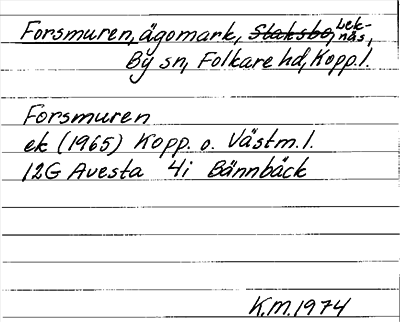 Forsmuren, ägomark, Staksbo, Leknäs,
By sn, Folkare hd, Kopp.l.
Forsmuren
ek (1965) Kopp. o. Västm.l.
12G Avesta 4i Bännbäck
K.M.1974